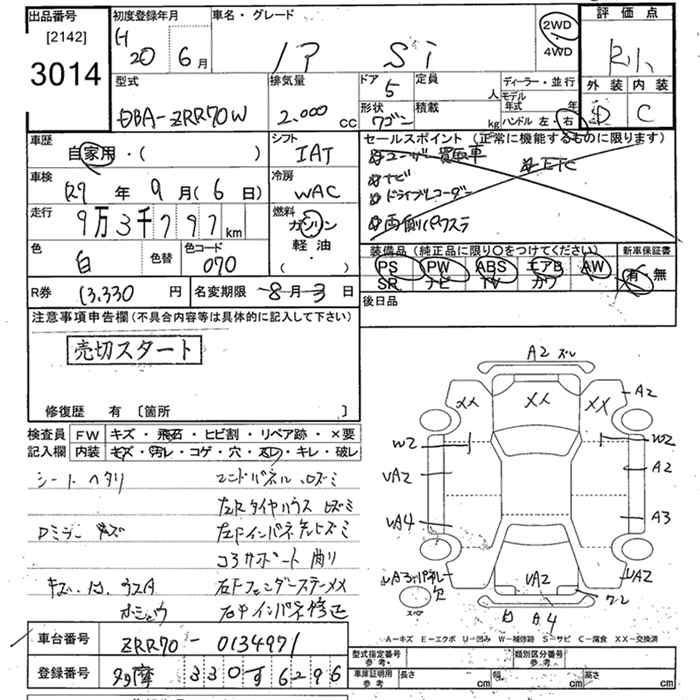 出品番号
[2142]
3014
初度登録年月
H20 6月
車名・グレード
ノア Si
2WD
4WD
評価点
外装 内装
D C
型式
DBA-ZRR70W
排気量
2.000 CC
ドア 5
定員 人
形状 ワゴン
積載 kg
ディーラー・並行
モデル年式 年
ハンドル 左・右
車歴
自家用・( )
シフト
IAT
車検
R7 年 9 月 ( 6 日)
冷房
WAC
走行
9万3千797km
燃料
ガソリン
軽油
・( )
色
白
色替
色コード
070
セールスポイント (正常に機能するものに限ります)
ユーザー買取車
ETC
ナビ
ドライブレコーダー
両側パワスラ
装備品 (純正品に限り〇をつけてください)
新車保証書
PS PW ABS エアB AW
SR ナビ TV カワ
有・無
R券 13,330 円
名変期限 8月3日
後日品
注意事項申告欄(不具合内容等は具体的に記入して下さい)
売切スタート
修復歴 有 〔箇所 〕
検査員記入欄
FW キズ・飛石・ヒビ割・リペア跡・×要
内装 キズ・汚レ・コゲ・穴・スレ・キレ・破レ
シートヘタリ
エンドパネル ロズミ
左Rタイヤハウス ロズミ
Dミラー キズ
コアサポート 曲り
右Fフェンダーステーメメ
右Fインパネ修正
A2 ズレ
XX XX XX
A2
W2 W2
UA2 A2
UA4 A3
UA2
UA2
A4
スペア
A-キズ E-エクボ U-凹み W-補修跡 S-サビ C-腐食 XX-交換済
車台番号
ZRR70-0134971
登録番号
多摩 330 す 6296
型式指定番号
参考
類別区分番号
参考
車庫証明記載
参考
長さ cm
幅 cm
高さ cm